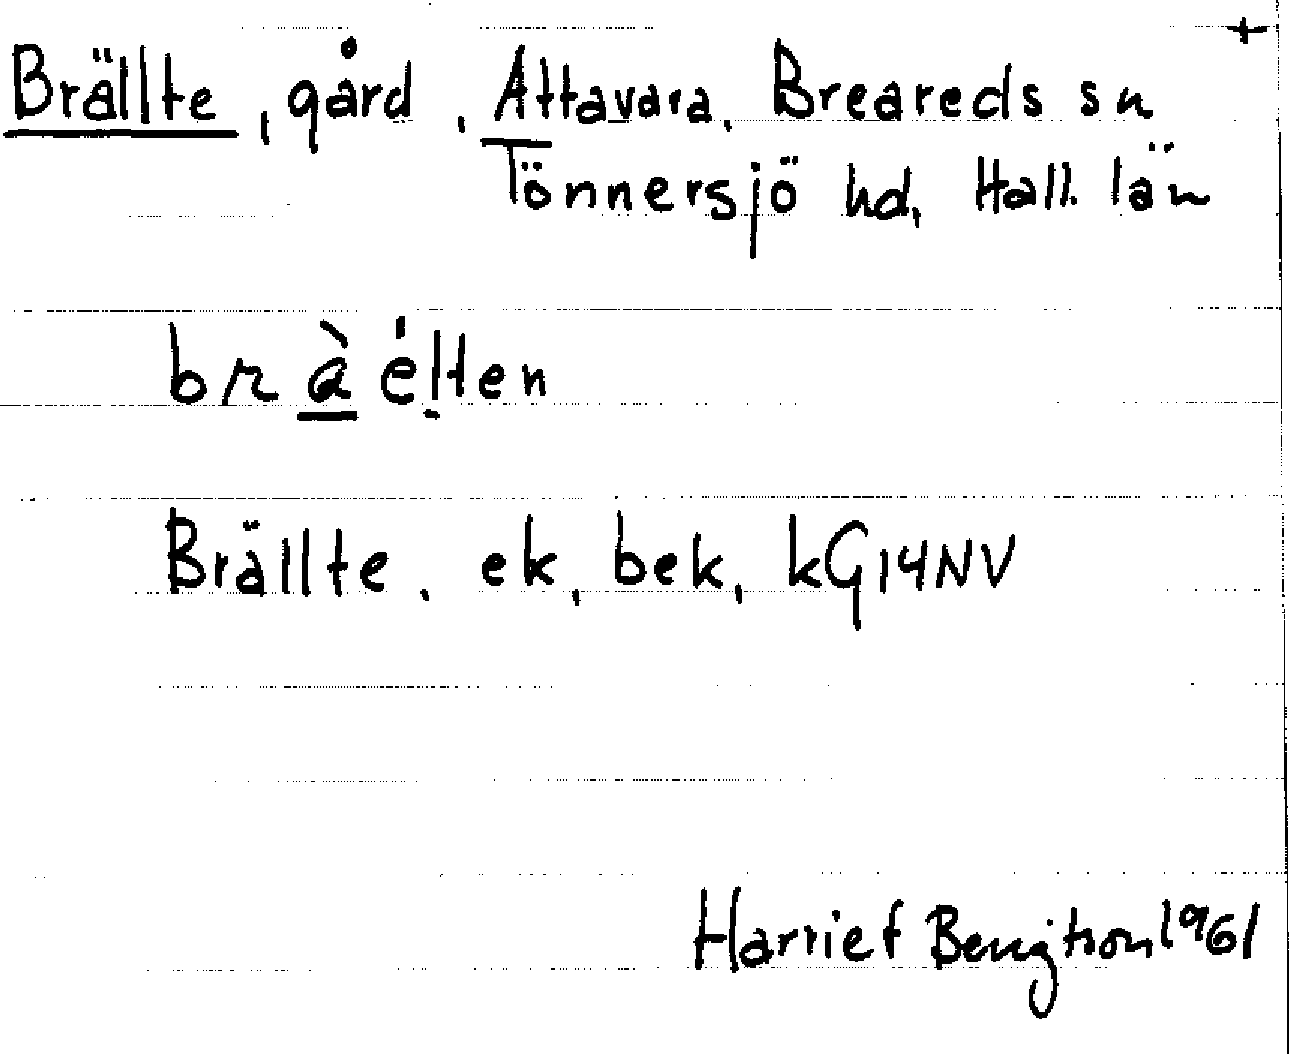 +
Brällte, gård, Attavara, Breareds sn
Tönnersjö hd, Hall. län
bràéḷten
Brällte, ek, bek, kG14NV
Harriet Bengtson 1961